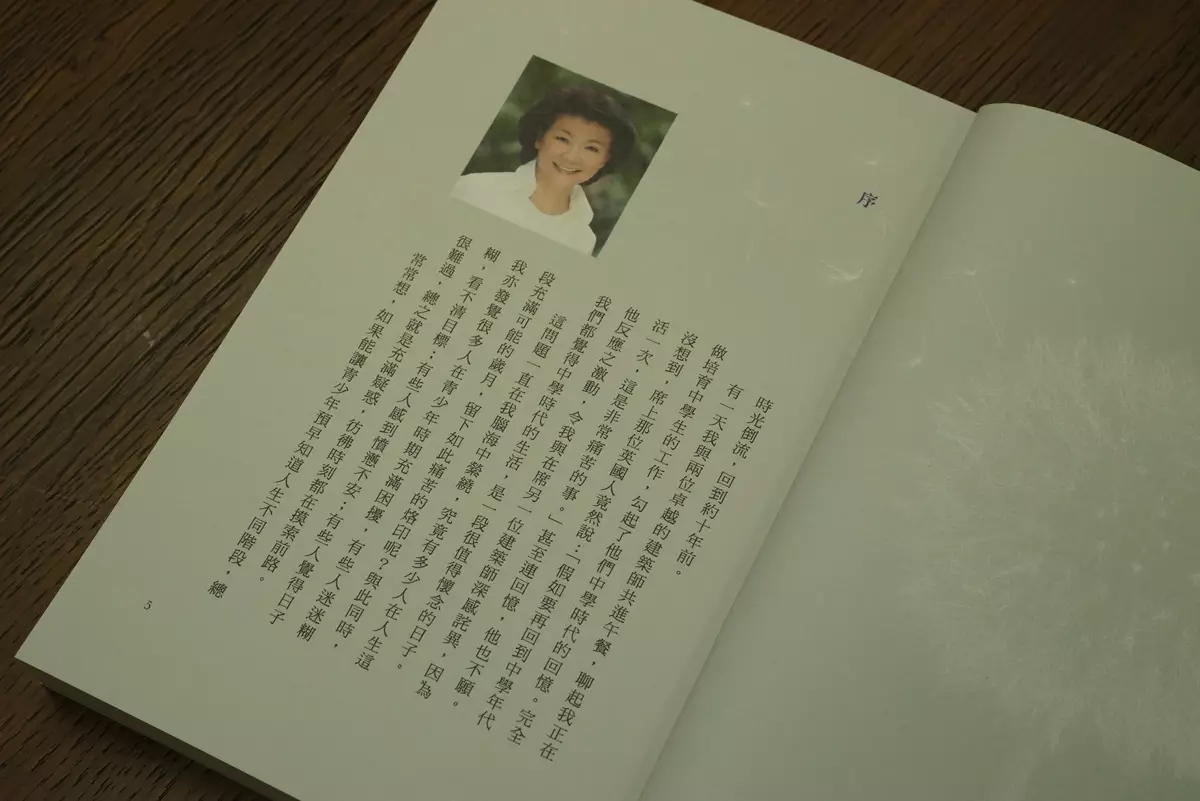 序
時光倒流，回到約十年前。
有一天我與兩位卓越的建築師共進午餐，聊起我正在
做培育中學生的工作，勾起了他們中學時代的回憶。完全
沒想到，席上那位英國人竟然說：「假如要再回到中學年代
活一次，這是非常痛苦的事。」甚至連回憶，他也不願。
他反應之激動，令我與在席另一位建築師深感詫異，因為
我們都覺得中學時代的生活，是一段很值得懷念的日子。
這問題一直在我腦海中縈繞，究竟有多少人在人生這
段充滿可能的歲月，留下如此痛苦的烙印呢？與此同時，
我亦發覺很多人在青少年時期充滿困擾，有些人迷迷糊
糊，看不清目標；有些人感到憤懣不安；有些人覺得日子
很難過，總之就是充滿疑惑，仿佛時刻都在摸索前路。
常常想，如果能讓青少年預早知道人生不同階段，總
5